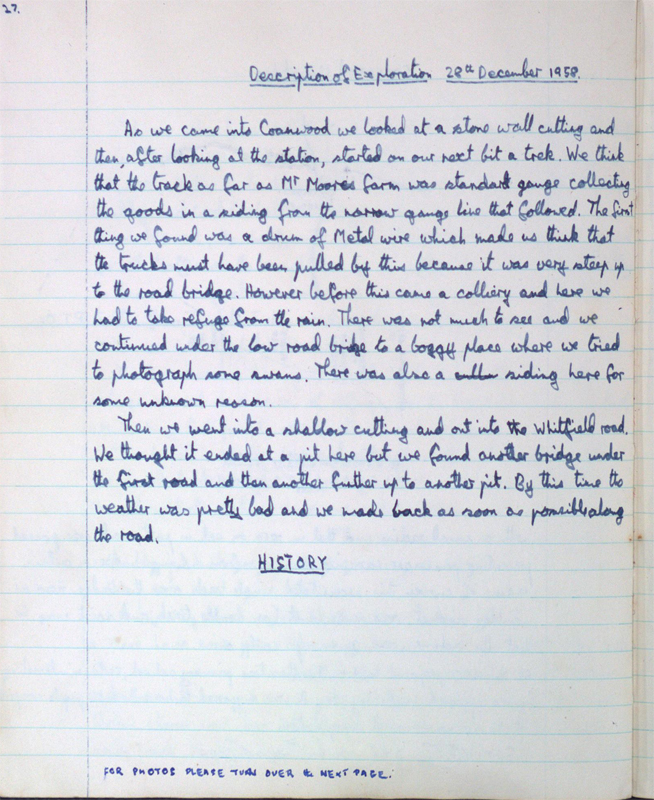 27.
Description of Exploration 28th December 1958.
As we came into Coanwood we looked at a stone wall cutting and
then, after looking at the station, started on our next bit a trek. We think
that the track as far as Mr Moores farm was standard gauge collecting
the goods in a siding from the narrow gauge line that followed. The first
thing we found was a drum of Metal wire which made us think that
the trucks must have been pulled by this because it was very steep up
to the road bridge. However before this came a colliery and here we
had to take refuge from the rain. There was not much to see and we
continued under the low road bridge to a boggy place where we tried
to photograph some swans. There was also a siding here for
some unknown reason.
Then we went into a shallow cutting and out into the Whitfield road.
We thought it ended at a pit here but we found another bridge under
the first road and then another further up to another pit. By this time the
weather was pretty bad and we made back as soon as possible along
the road.
HISTORY
FOR PHOTOS PLEASE TURN OVER the NEXT PAGE.